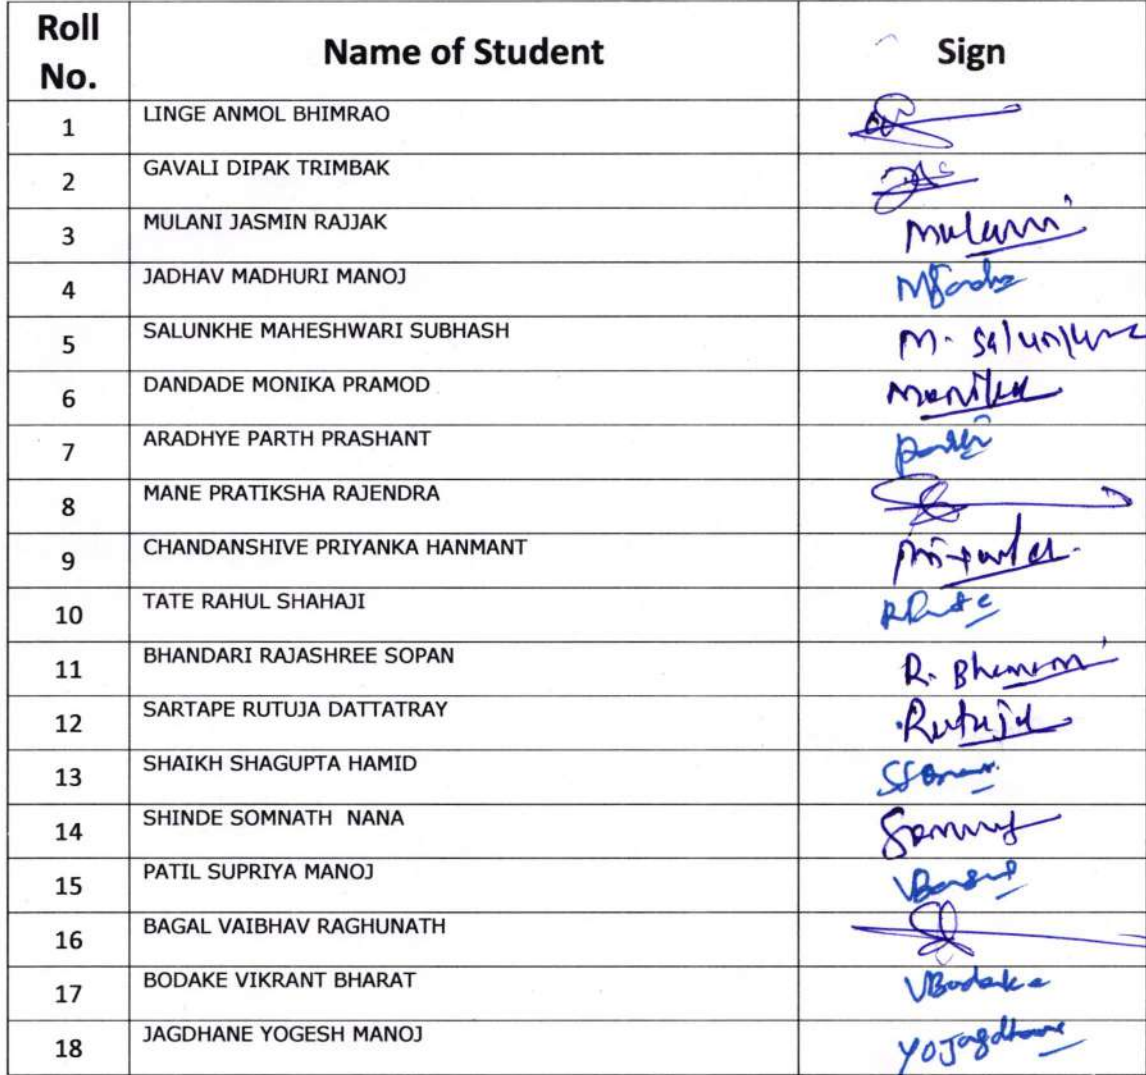 Roll No. Name of Student Sign
1 LINGE ANMOL BHIMRAO
2 GAVALI DIPAK TRIMBAK
3 MULANI JASMIN RAJJAK Mulani
4 JADHAV MADHURI MANOJ
5 SALUNKHE MAHESHWARI SUBHASH M. Salunkhe
6 DANDADE MONIKA PRAMOD Monika
7 ARADHYE PARTH PRASHANT Parth
8 MANE PRATIKSHA RAJENDRA
9 CHANDANSHIVE PRIYANKA HANMANT
10 TATE RAHUL SHAHAJI
11 BHANDARI RAJASHREE SOPAN
12 SARTAPE RUTUJA DATTATRAY Rutuja
13 SHAIKH SHAGUPTA HAMID
14 SHINDE SOMNATH NANA
15 PATIL SUPRIYA MANOJ
16 BAGAL VAIBHAV RAGHUNATH
17 BODAKE VIKRANT BHARAT VBodake
18 JAGDHANE YOGESH MANOJ YOJagdhane